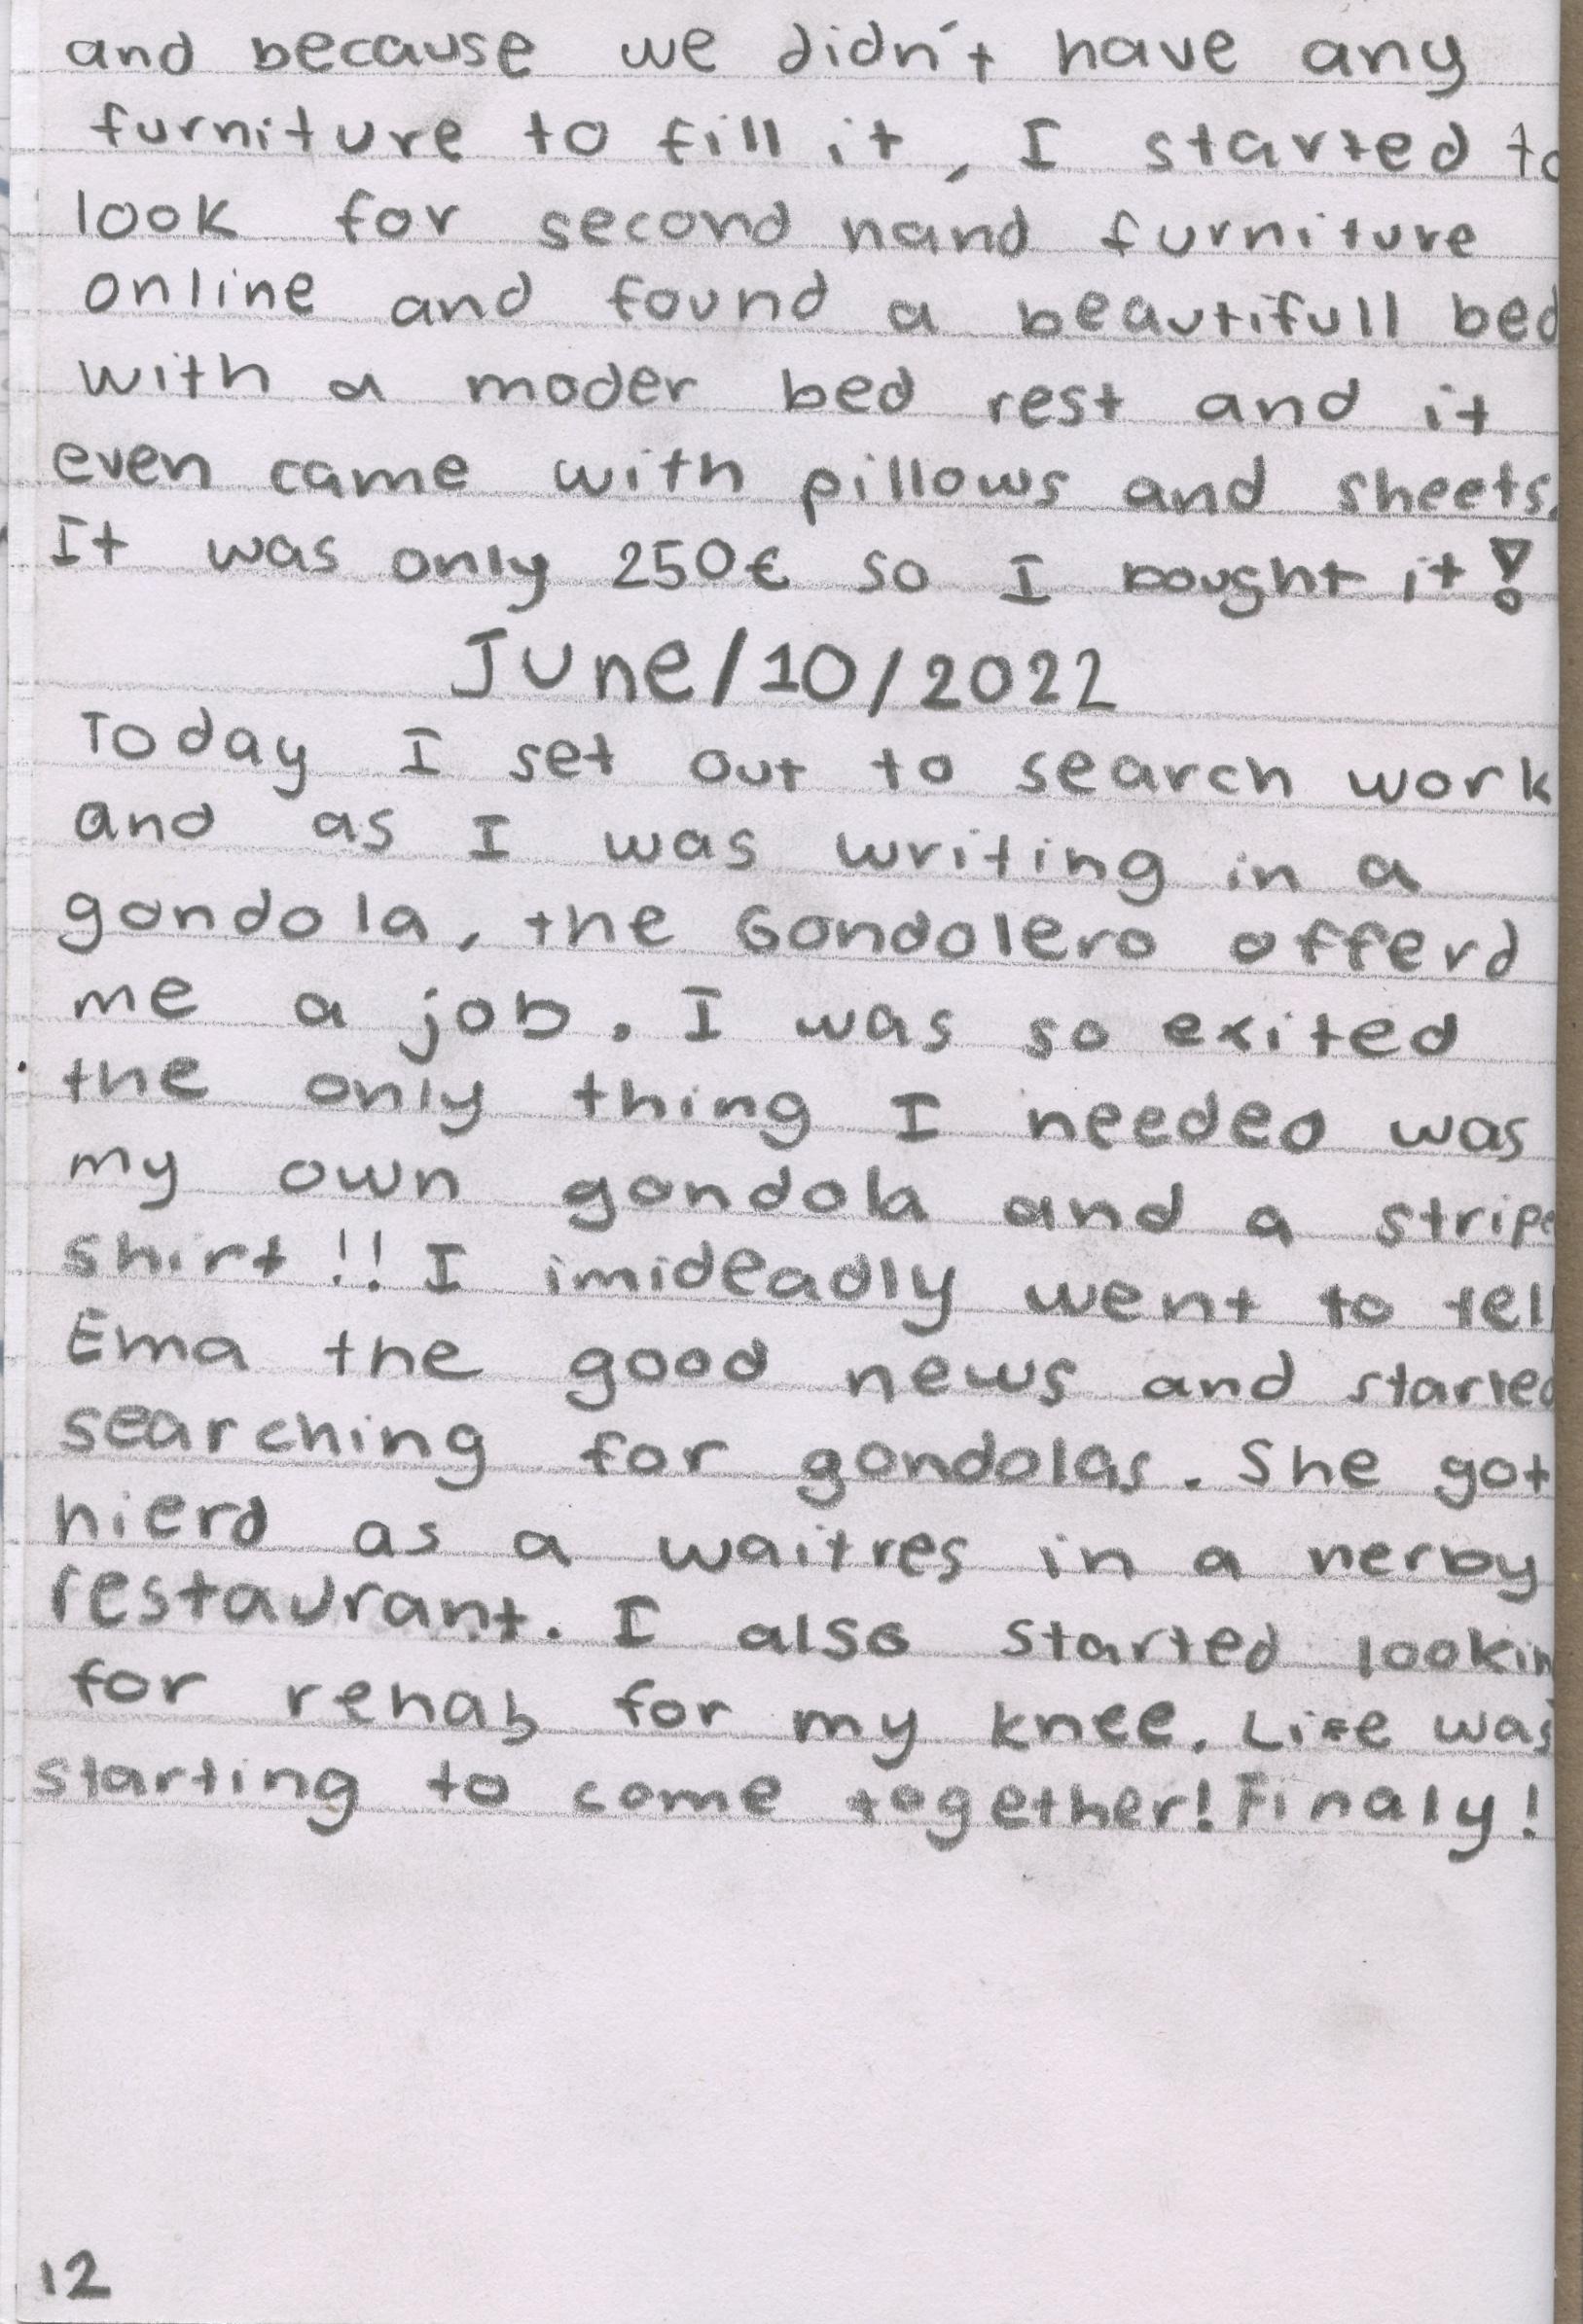 and because we didn't have any
furniture to fill it, I started to
look for second hand furniture
online and found a beautifull bed
with a moder bed rest and it
even came with pillows and sheets.
It was only 250€ so I bought it!
June/10/2022
Today I set out to search work
and as I was writing in a
gondola, the Gondolero offerd
me a job. I was so exited
the only thing I needed was
my own gondola and a stripe
shirt!! I imideadly went to tell
Ema the good news and started
searching for gondolas. She got
hierd as a waitres in a nerby
restaurant. I also started lookin
for rehab for my knee. Life was
starting to come together! Finaly!
12